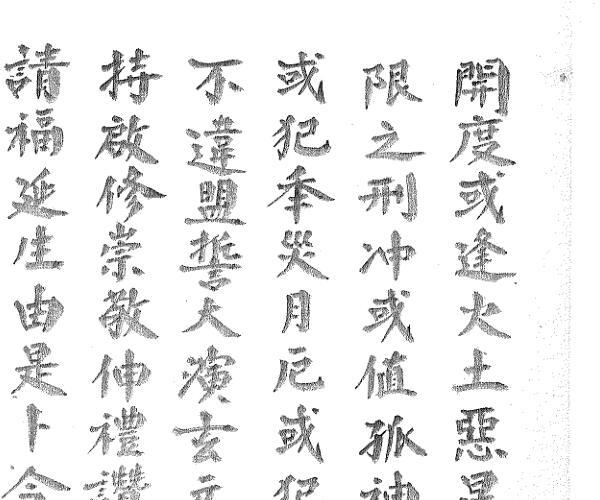 開度或逢火土惡星
限之刑冲或值孤神
或犯年災月厄或犯
不違盟誓大演玄元
持啟修崇敬伸禮讚
請福延生由是卜今